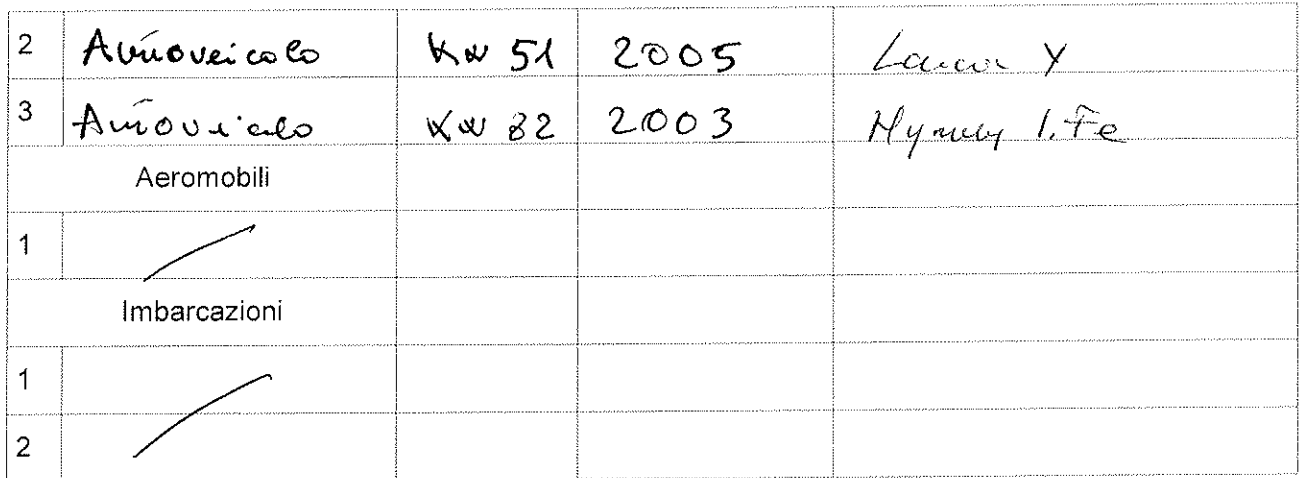 2 Autoveicolo KW 51 2005 Lancia Y
3 Autoveicolo KW 82 2003
Aeromobili
1
Imbarcazioni
1
2